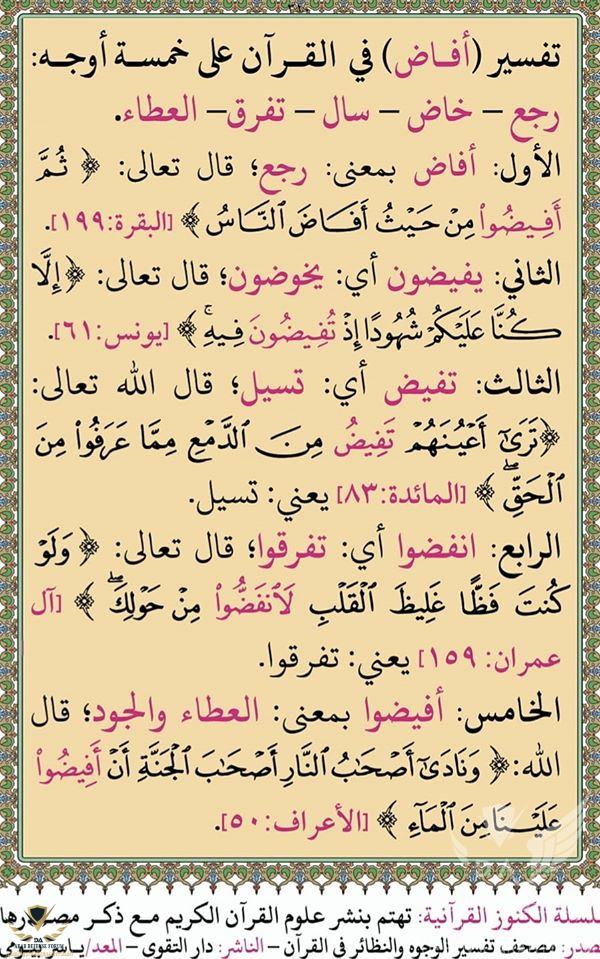 ٣١٠
تفسير (أفاض) في القرآن على خمسة أوجه:
رجع – خاض – سال – تفرق – العطاء.
الأول: أفاض بمعنى: رجع؛ قال تعالى: ﴿ ثُمَّ
أَفِيضُواْ مِنْ حَيْثُ أَفَاضَ ٱلنَّاسُ ﴾ [البقرة:١٩٩].
الثاني: يفيضون أي: يخوضون؛ قال تعالى: ﴿ إِلَّا
كُنَّا عَلَيْكُمْ شُهُودًا إِذْ تُفِيضُونَ فِيهِۚ ﴾ [يونس:٦١].
الثالث: تفيض أي: تسيل؛ قال الله تعالى:
﴿تَرَىٰٓ أَعْيُنَهُمْ تَفِيضُ مِنَ ٱلدَّمْعِ مِمَّا عَرَفُواْ مِنَ
ٱلْحَقِّۖ ﴾ [المائدة:٨٣] يعني: تسيل.
الرابع: انفضوا أي: تفرقوا؛ قال تعالى: ﴿ وَلَوْ
كُنتَ فَظًّا غَلِيظَ ٱلْقَلْبِ لَٱنفَضُّواْ مِنْ حَوْلِكَۖ ﴾ [آل
عمران: ١٥٩] يعني: تفرقوا.
الخامس: أفيضوا بمعنى: العطاء والجود؛ قال
الله:﴿ وَنَادَىٰٓ أَصْحَٰبُ ٱلنَّارِ أَصْحَٰبَ ٱلْجَنَّةِ أَنْ أَفِيضُواْ
عَلَيْنَا مِنَ ٱلْمَآءِ ﴾ [الأعراف:٥٠].
سلسلة الكنوز القرآنية: تهتم بنشر علوم القرآن الكريم مع ذكر مصدرها
مصدر: مصحف تفسير الوجوه والنظائر في القرآن – الناشر: دار التقوى – المعد/
DA
ARAB DEFENSE FORUM